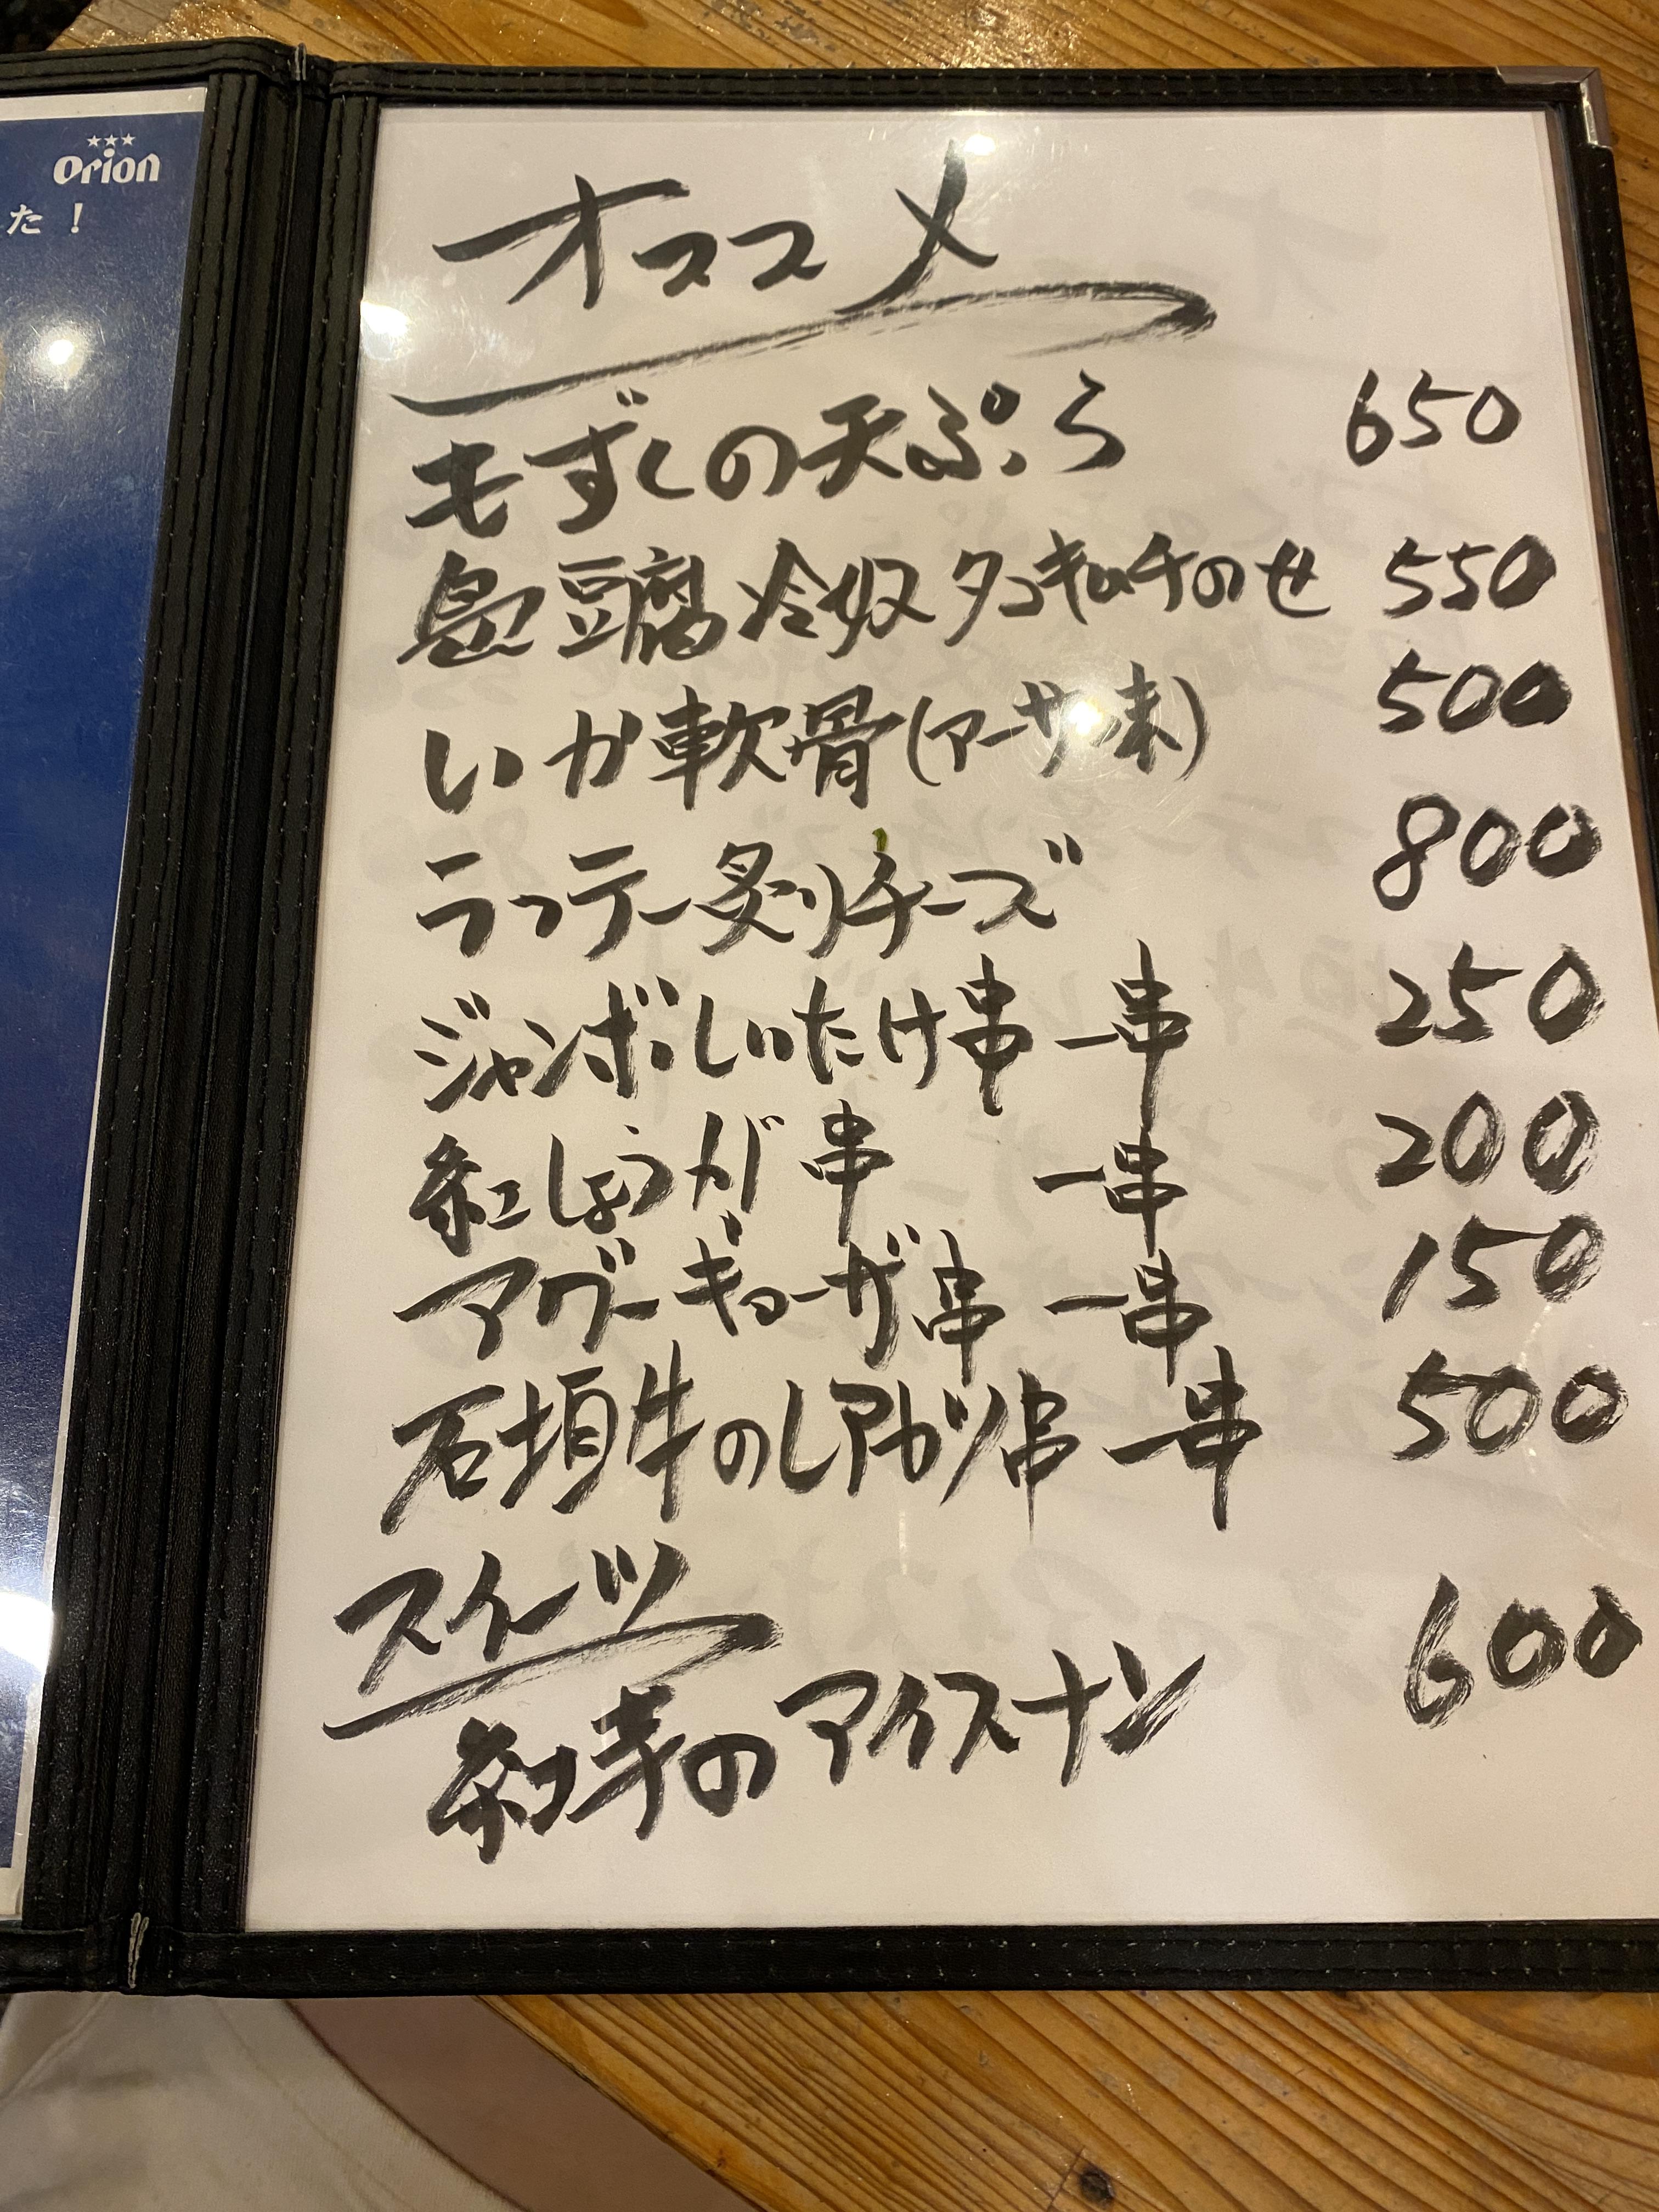 Orion
た！
オススメ
もずくの天ぷら 650
島豆腐冷奴タコキムチのせ 550
いか軟骨(アーサ味) 500
ラフテー炙りチーズ 800
ジャンボしいたけ串 一串 250
紅しょうが串 一串 200
アグーギョーザ串 一串 150
石垣牛のレアカツ串 一串 500
スイーツ
紅芋のアイスナン 600